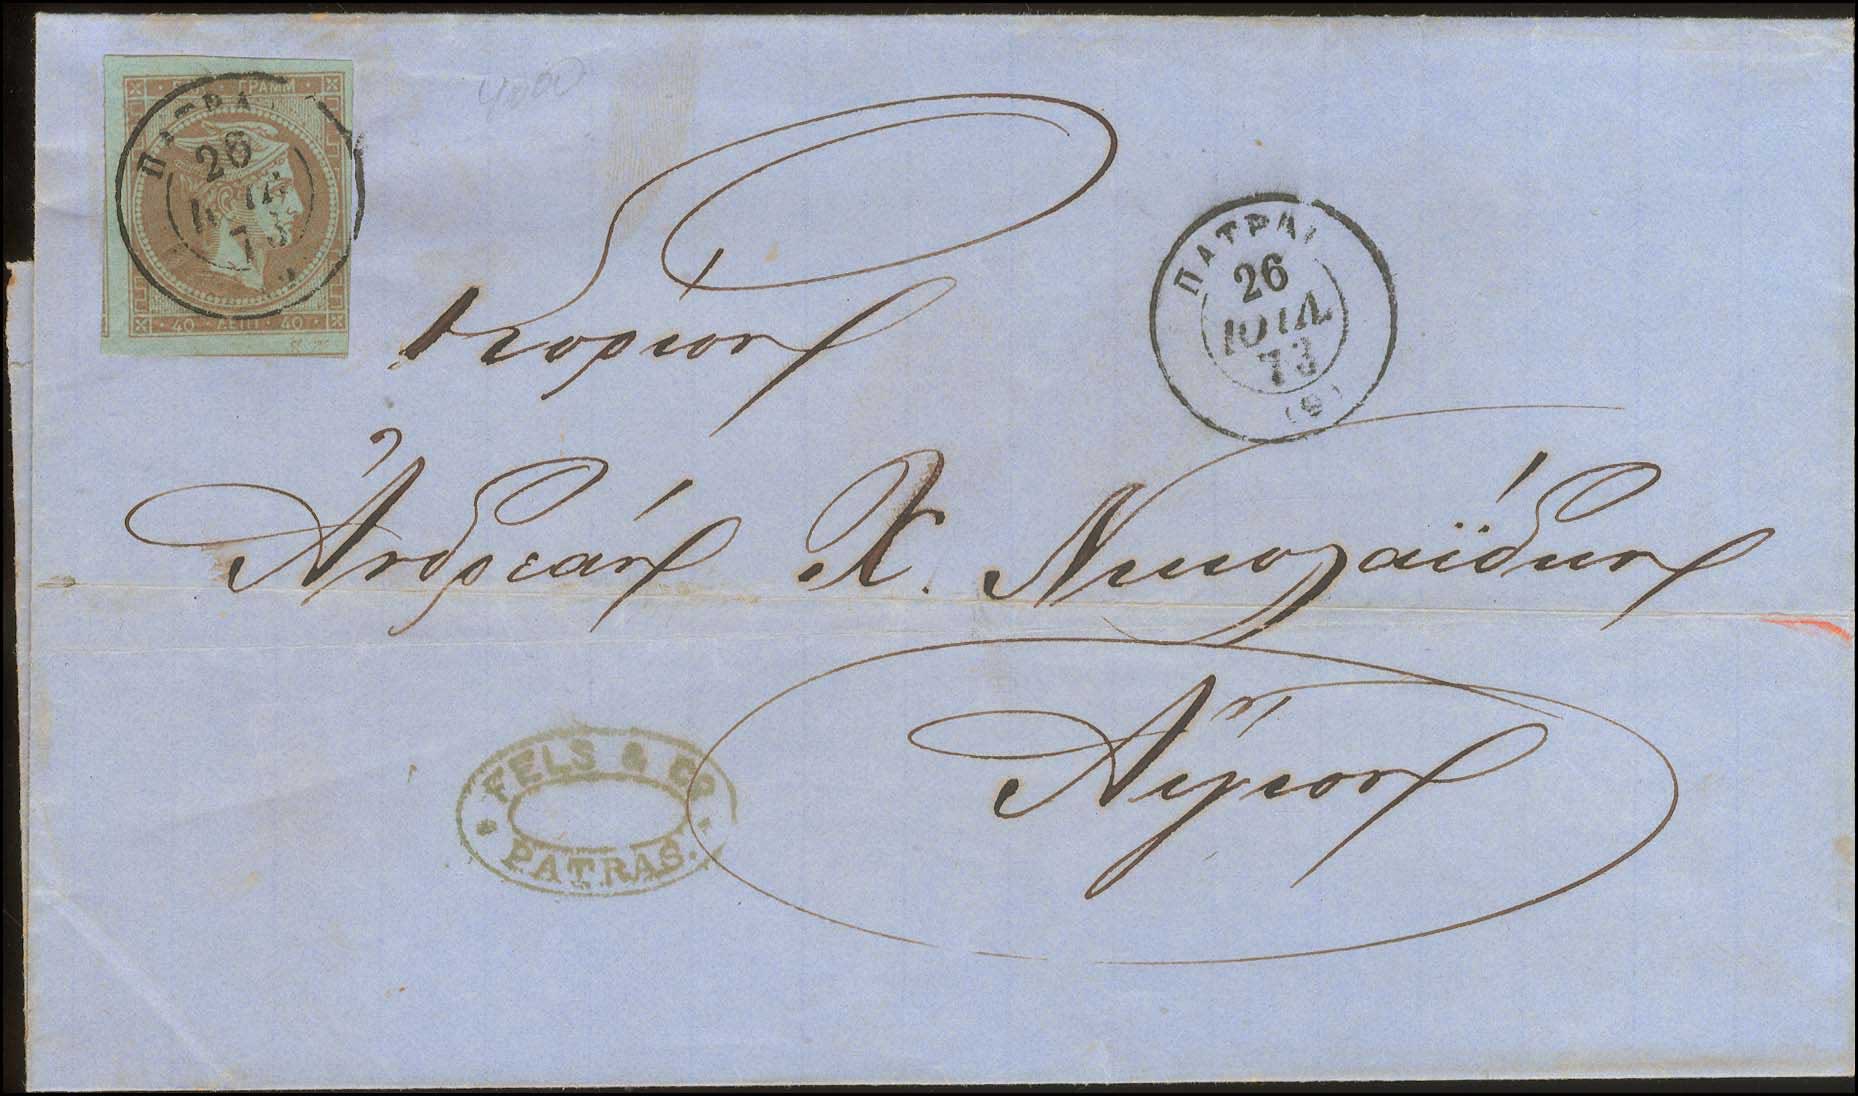 4000
ΓΡΑΜΜ
40 ΛΕΠΤ 40
ΠΑΤΡΑΙ
26
ΙΟΥΛ.
73
ΠΑΤΡΑΙ
26
ΙΟΥΛ.
73
(Φ)
Κύριον
Ἀνδρέαν Χ. Νικολαΐδην
Αἴγιον
FELS & CO
PATRAS.